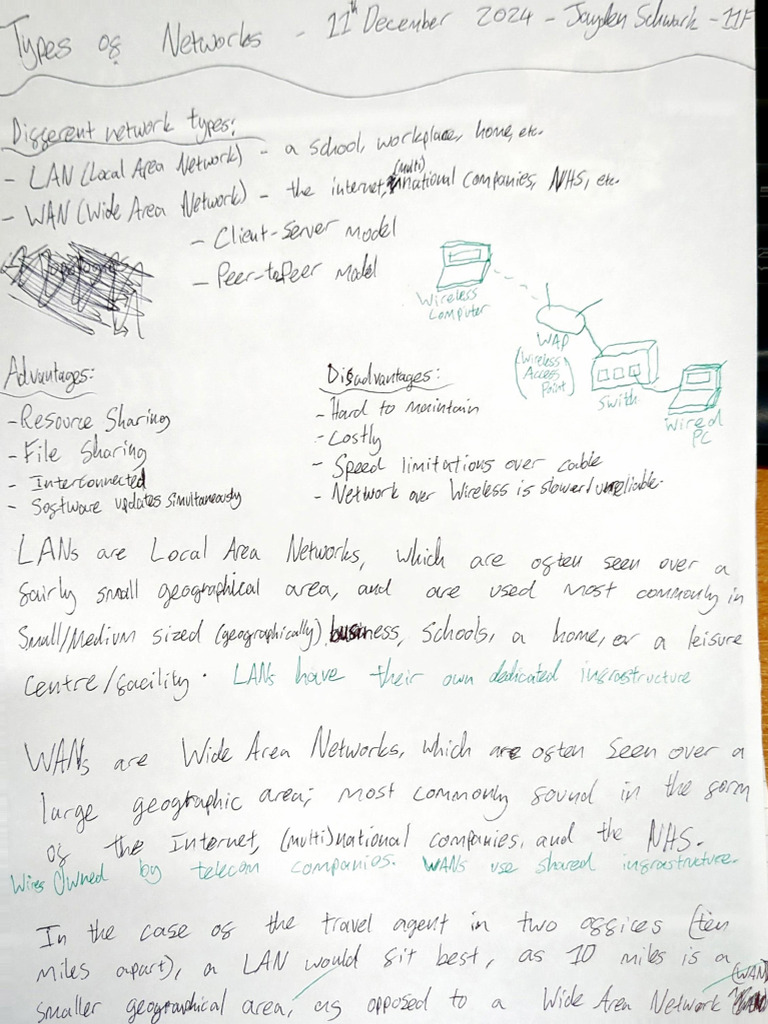 Types of Networks - 11th December 2024 - Jayden Schwark - 11F
Different network types:
- LAN (Local Area Network) - a school, workplace, home, etc.
- WAN (Wide Area Network) - the internet, (multi)national companies, NHS, etc.
- Client-Server model
- Peer-to-Peer model
Wireless
Computer
WAP
(Wireless
Access
Point)
Swith
Wired
PC
Advantages:
- Resource Sharing
- File Sharing
- Interconnected
- Software updates simultaneously
Disadvantages:
- Hard to maintain
- Costly
- Speed limitations over cable
- Network over Wireless is slower/unreliable.
LANs are Local Area Networks, which are often seen over a
fairly small geographical area, and are used most commonly in
Small/Medium sized (geographically) business, Schools, a home, or a leisure
centre/facility. LANs have their own dedicated infrastructure
WANs are Wide Area Networks, which are often seen over a
large geographic area; most commonly found in the form
of the Internet, (multi)national companies, and the NHS.
Wires Owned by telecom companies. WANs use shared infrastructure.
In the case of the travel agent in two offices (ten
miles apart), a LAN would fit best, as 10 miles is a
smaller geographical area, as opposed to a Wide Area Network (WAN)